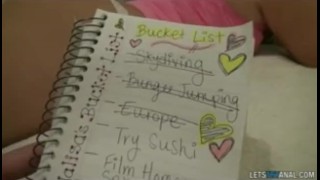 Bucket List
Skydiving
Bungee Jumping
Europe
Try Sushi
Film Home
Bucket List
LETSTRYANAL.COM